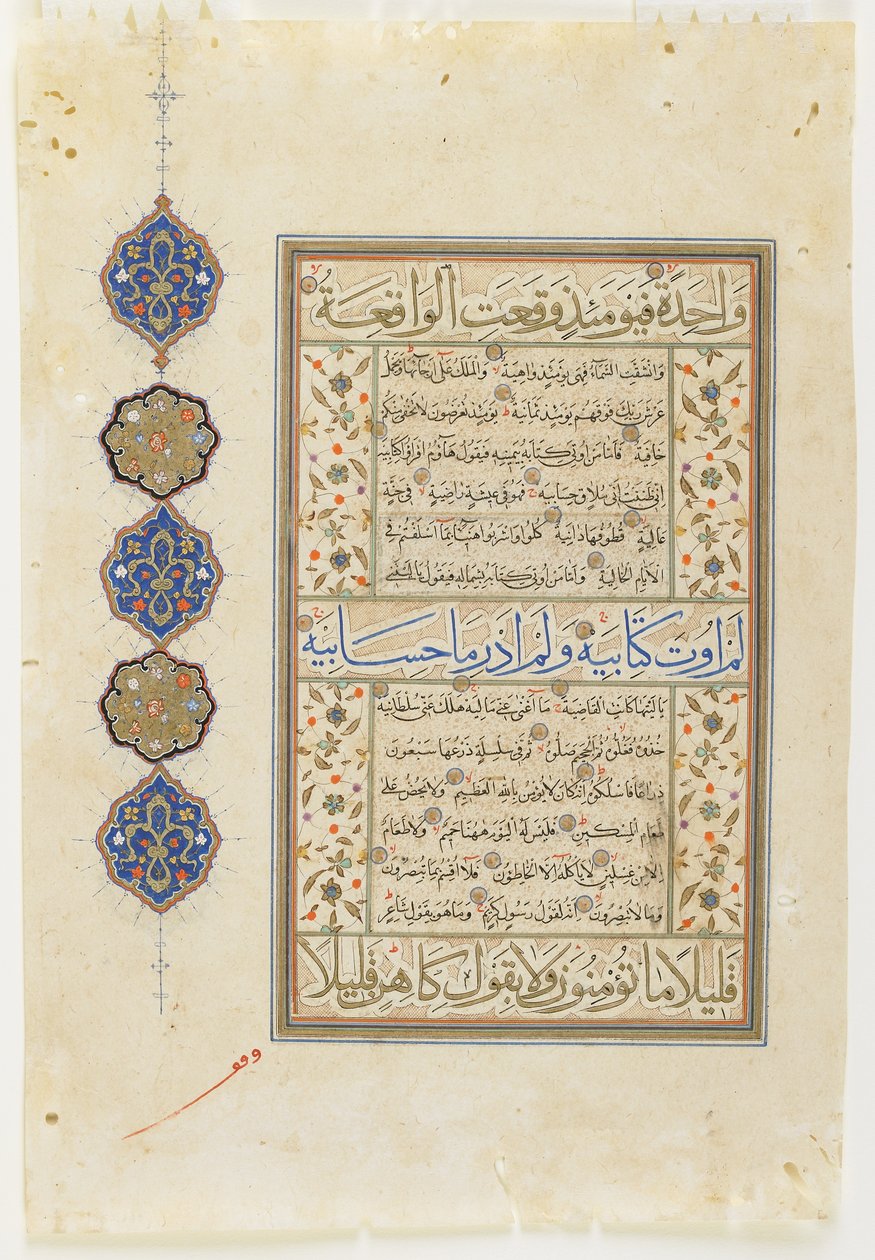 وَاحِدَةً فَيَوْمَئِذٍ وَقَعَتِ الْوَاقِعَةُ
وَانْشَقَّتِ السَّمَاءُ فَهِيَ يَوْمَئِذٍ وَاهِيَةٌ وَالْمَلَكُ عَلَى أَرْجَائِهَا وَيَحْمِلُ
عَرْشَ رَبِّكَ فَوْقَهُمْ يَوْمَئِذٍ ثَمَانِيَةٌ يَوْمَئِذٍ تُعْرَضُونَ لَا تَخْفَى مِنْكُمْ
خَافِيَةٌ فَأَمَّا مَنْ أُوتِيَ كِتَابَهُ بِيَمِينِهِ فَيَقُولُ هَاؤُمُ اقْرَءُوا كِتَابِيَهْ
إِنِّي ظَنَنْتُ أَنِّي مُلَاقٍ حِسَابِيَهْ فَهُوَ فِي عِيشَةٍ رَاضِيَةٍ فِي جَنَّةٍ
عَالِيَةٍ قُطُوفُهَا دَانِيَةٌ كُلُوا وَاشْرَبُوا هَنِيئًا بِمَا أَسْلَفْتُمْ فِي
الْأَيَّامِ الْخَالِيَةِ وَأَمَّا مَنْ أُوتِيَ كِتَابَهُ بِشِمَالِهِ فَيَقُولُ يَا لَيْتَنِي
لَمْ أُوتَ كِتَابِيَهْ وَلَمْ أَدْرِ مَا حِسَابِيَهْ
يَا لَيْتَهَا كَانَتِ الْقَاضِيَةَ مَا أَغْنَى عَنِّي مَالِيَهْ هَلَكَ عَنِّي سُلْطَانِيَهْ
خُذُوهُ فَغُلُّوهُ ثُمَّ الْجَحِيمَ صَلُّوهُ ثُمَّ فِي سِلْسِلَةٍ ذَرْعُهَا سَبْعُونَ
ذِرَاعًا فَاسْلُكُوهُ إِنَّهُ كَانَ لَا يُؤْمِنُ بِاللَّهِ الْعَظِيمِ وَلَا يَحُضُّ عَلَى
طَعَامِ الْمِسْكِينِ فَلَيْسَ لَهُ الْيَوْمَ هَهُنَا حَمِيمٌ وَلَا طَعَامٌ
إِلَّا مِنْ غِسْلِينٍ لَا يَأْكُلُهُ إِلَّا الْخَاطِئُونَ فَلَا أُقْسِمُ بِمَا تُبْصِرُونَ
وَمَا لَا تُبْصِرُونَ إِنَّهُ لَقَوْلُ رَسُولٍ كَرِيمٍ وَمَا هُوَ بِقَوْلِ شَاعِرٍ
قَلِيلًا مَا تُؤْمِنُونَ وَلَا بِقَوْلِ كَاهِنٍ قَلِيلًا
وقف